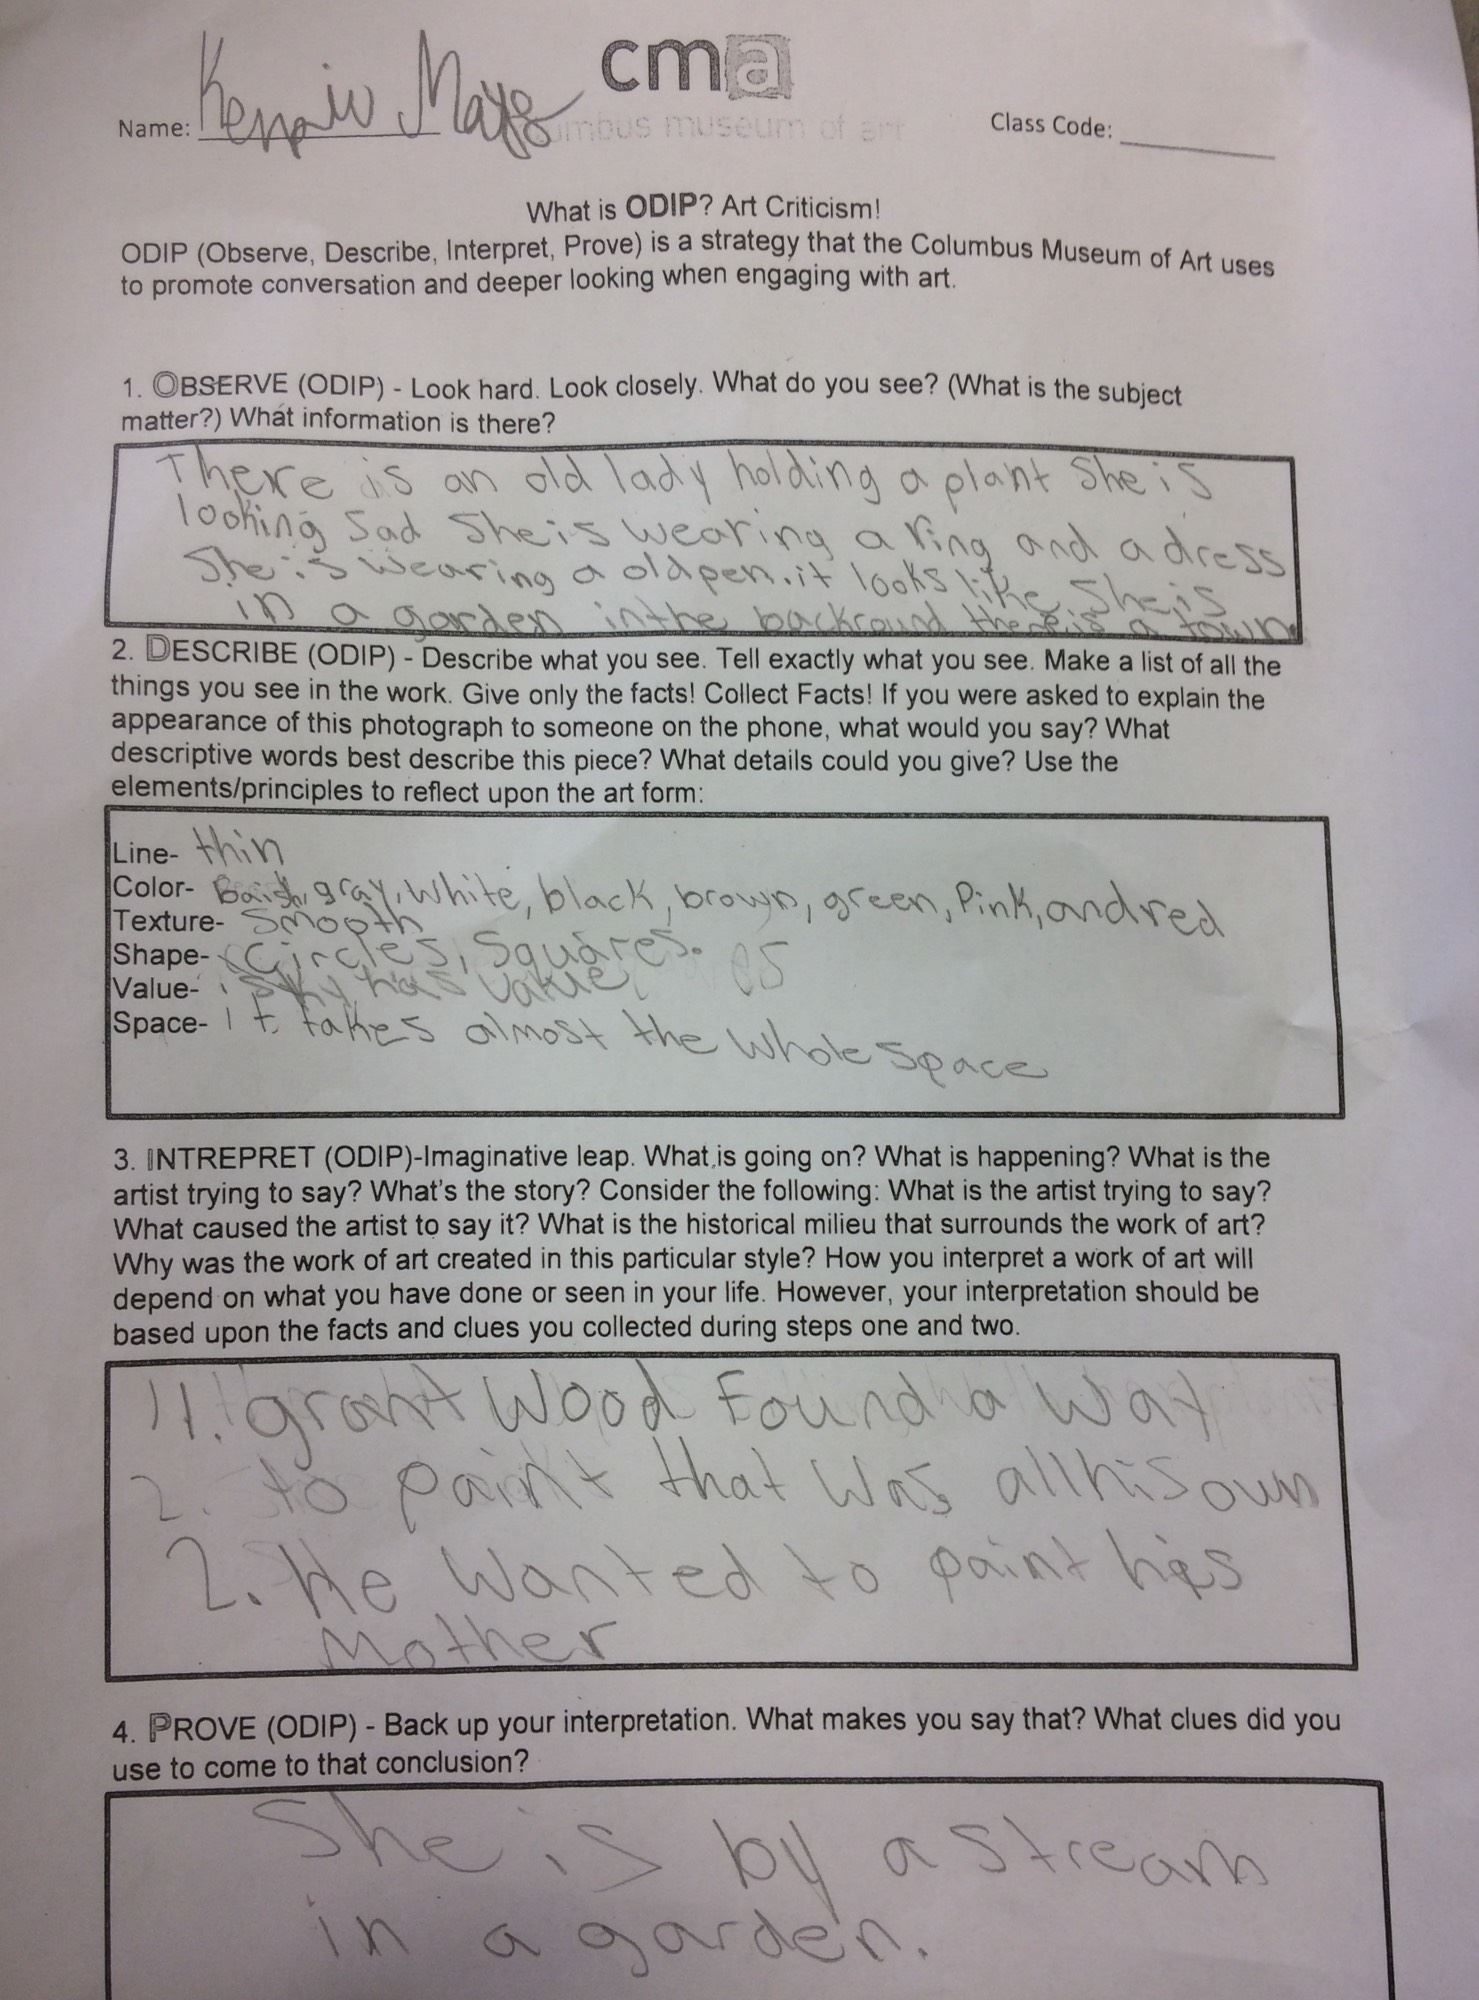 cma
Name: Mays Columbus museum of art Class Code:
What is ODIP? Art Criticism!
ODIP (Observe, Describe, Interpret, Prove) is a strategy that the Columbus Museum of Art uses
to promote conversation and deeper looking when engaging with art.
1. OBSERVE (ODIP) - Look hard. Look closely. What do you see? (What is the subject
matter?) What information is there?
There is an old lady holding a plant She is
looking Sad She is wearing a ring and a dress
She is wearing a old pen. it looks like She is
in a garden in the backround there is a town
2. DESCRIBE (ODIP) - Describe what you see. Tell exactly what you see. Make a list of all the
things you see in the work. Give only the facts! Collect Facts! If you were asked to explain the
appearance of this photograph to someone on the phone, what would you say? What
descriptive words best describe this piece? What details could you give? Use the
elements/principles to reflect upon the art form:
Line- thin
Color- Baish, gray, White, black, brown, green, Pink, and red
Texture- Smooth
Shape- Circles, Squares.
Value- Sky has value
Space- It takes almost the whole Space
3. INTREPRET (ODIP)-Imaginative leap. What is going on? What is happening? What is the
artist trying to say? What's the story? Consider the following: What is the artist trying to say?
What caused the artist to say it? What is the historical milieu that surrounds the work of art?
Why was the work of art created in this particular style? How you interpret a work of art will
depend on what you have done or seen in your life. However, your interpretation should be
based upon the facts and clues you collected during steps one and two.
1. grant Wood Found a way
2. to paint that was all his own
2. He wanted to paint his
Mother
4. PROVE (ODIP) - Back up your interpretation. What makes you say that? What clues did you
use to come to that conclusion?
She is by a stream
in a garden.